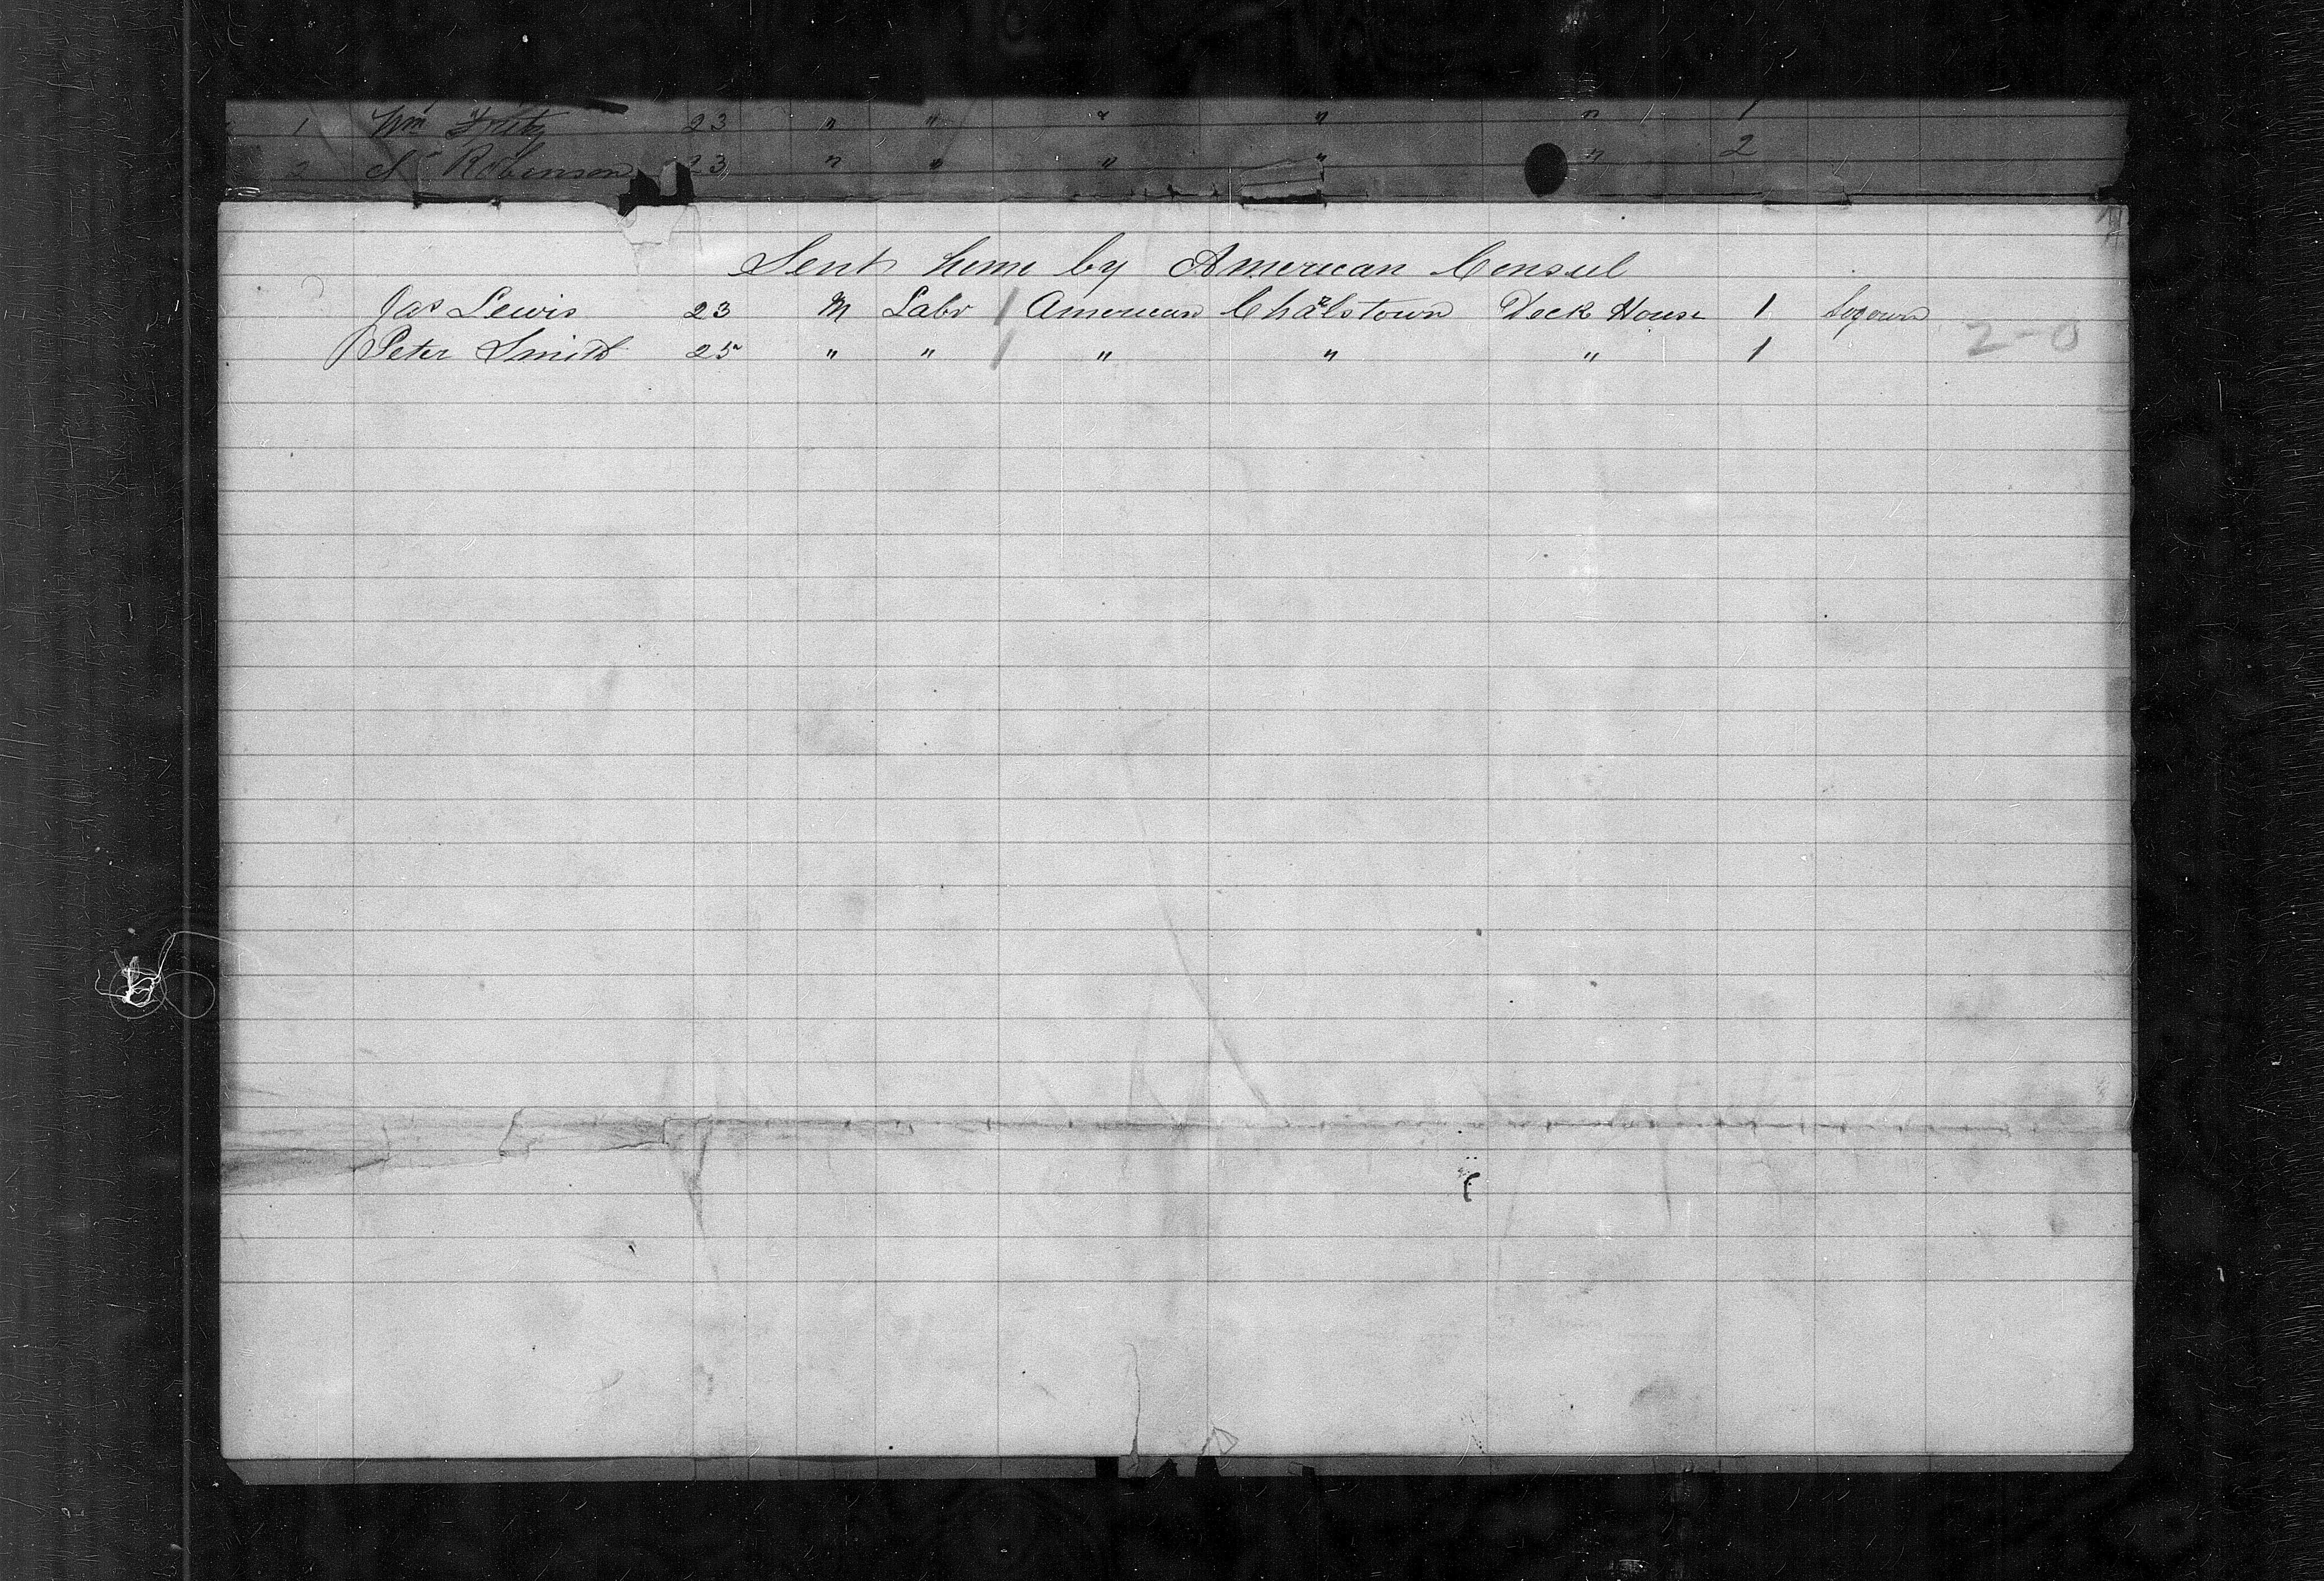 1 Wm Fritz 23 " " " " " 1
2 Robinson 23 " " " " " 2
Sent home by American Consul
Jas Lewis 23 M Labr / American Charlstown Deck House 1 Sogourn
Peter Smith 25 " " / " " " 1
2-0